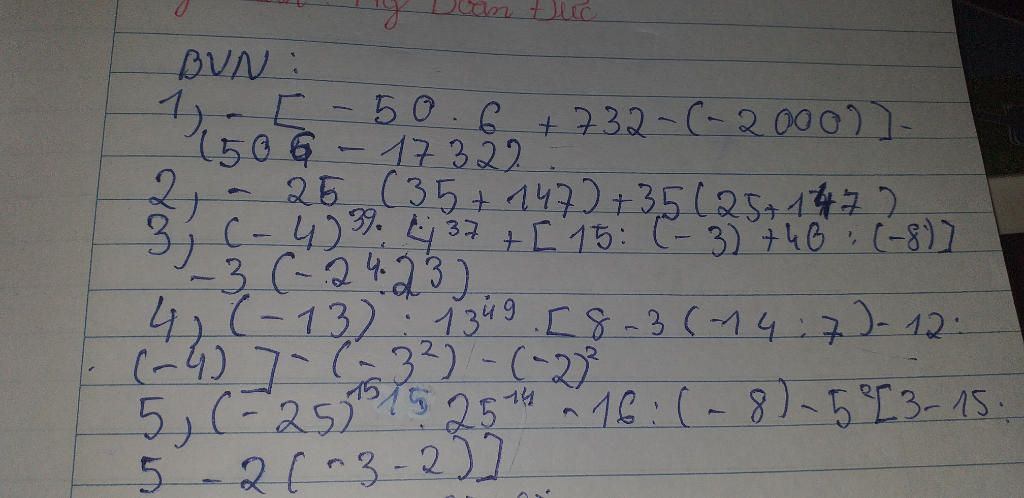 Doãn Đức
BVN :
1, - [ - 50 . 6 + 732 - (- 2000) ] -
(506 - 1732) .
2, - 25 (35 + 147) + 35 (25 + 147)
3, (- 4)³⁹ : 4³⁷ + [ 15 : (- 3) + 48 : (-8) ]
- 3 (- 2⁴ . 23)
4, (- 13) : 13⁴⁹ . [ 8 - 3 (- 14 : 7) - 12 :
. (- 4) ] - (- 3²) - (- 2)²
5, (- 25)¹⁵ : 25¹⁴ - 16 : (- 8) - 5² [ 3 - 15 :
5 - 2 ( - 3 - 2) ]